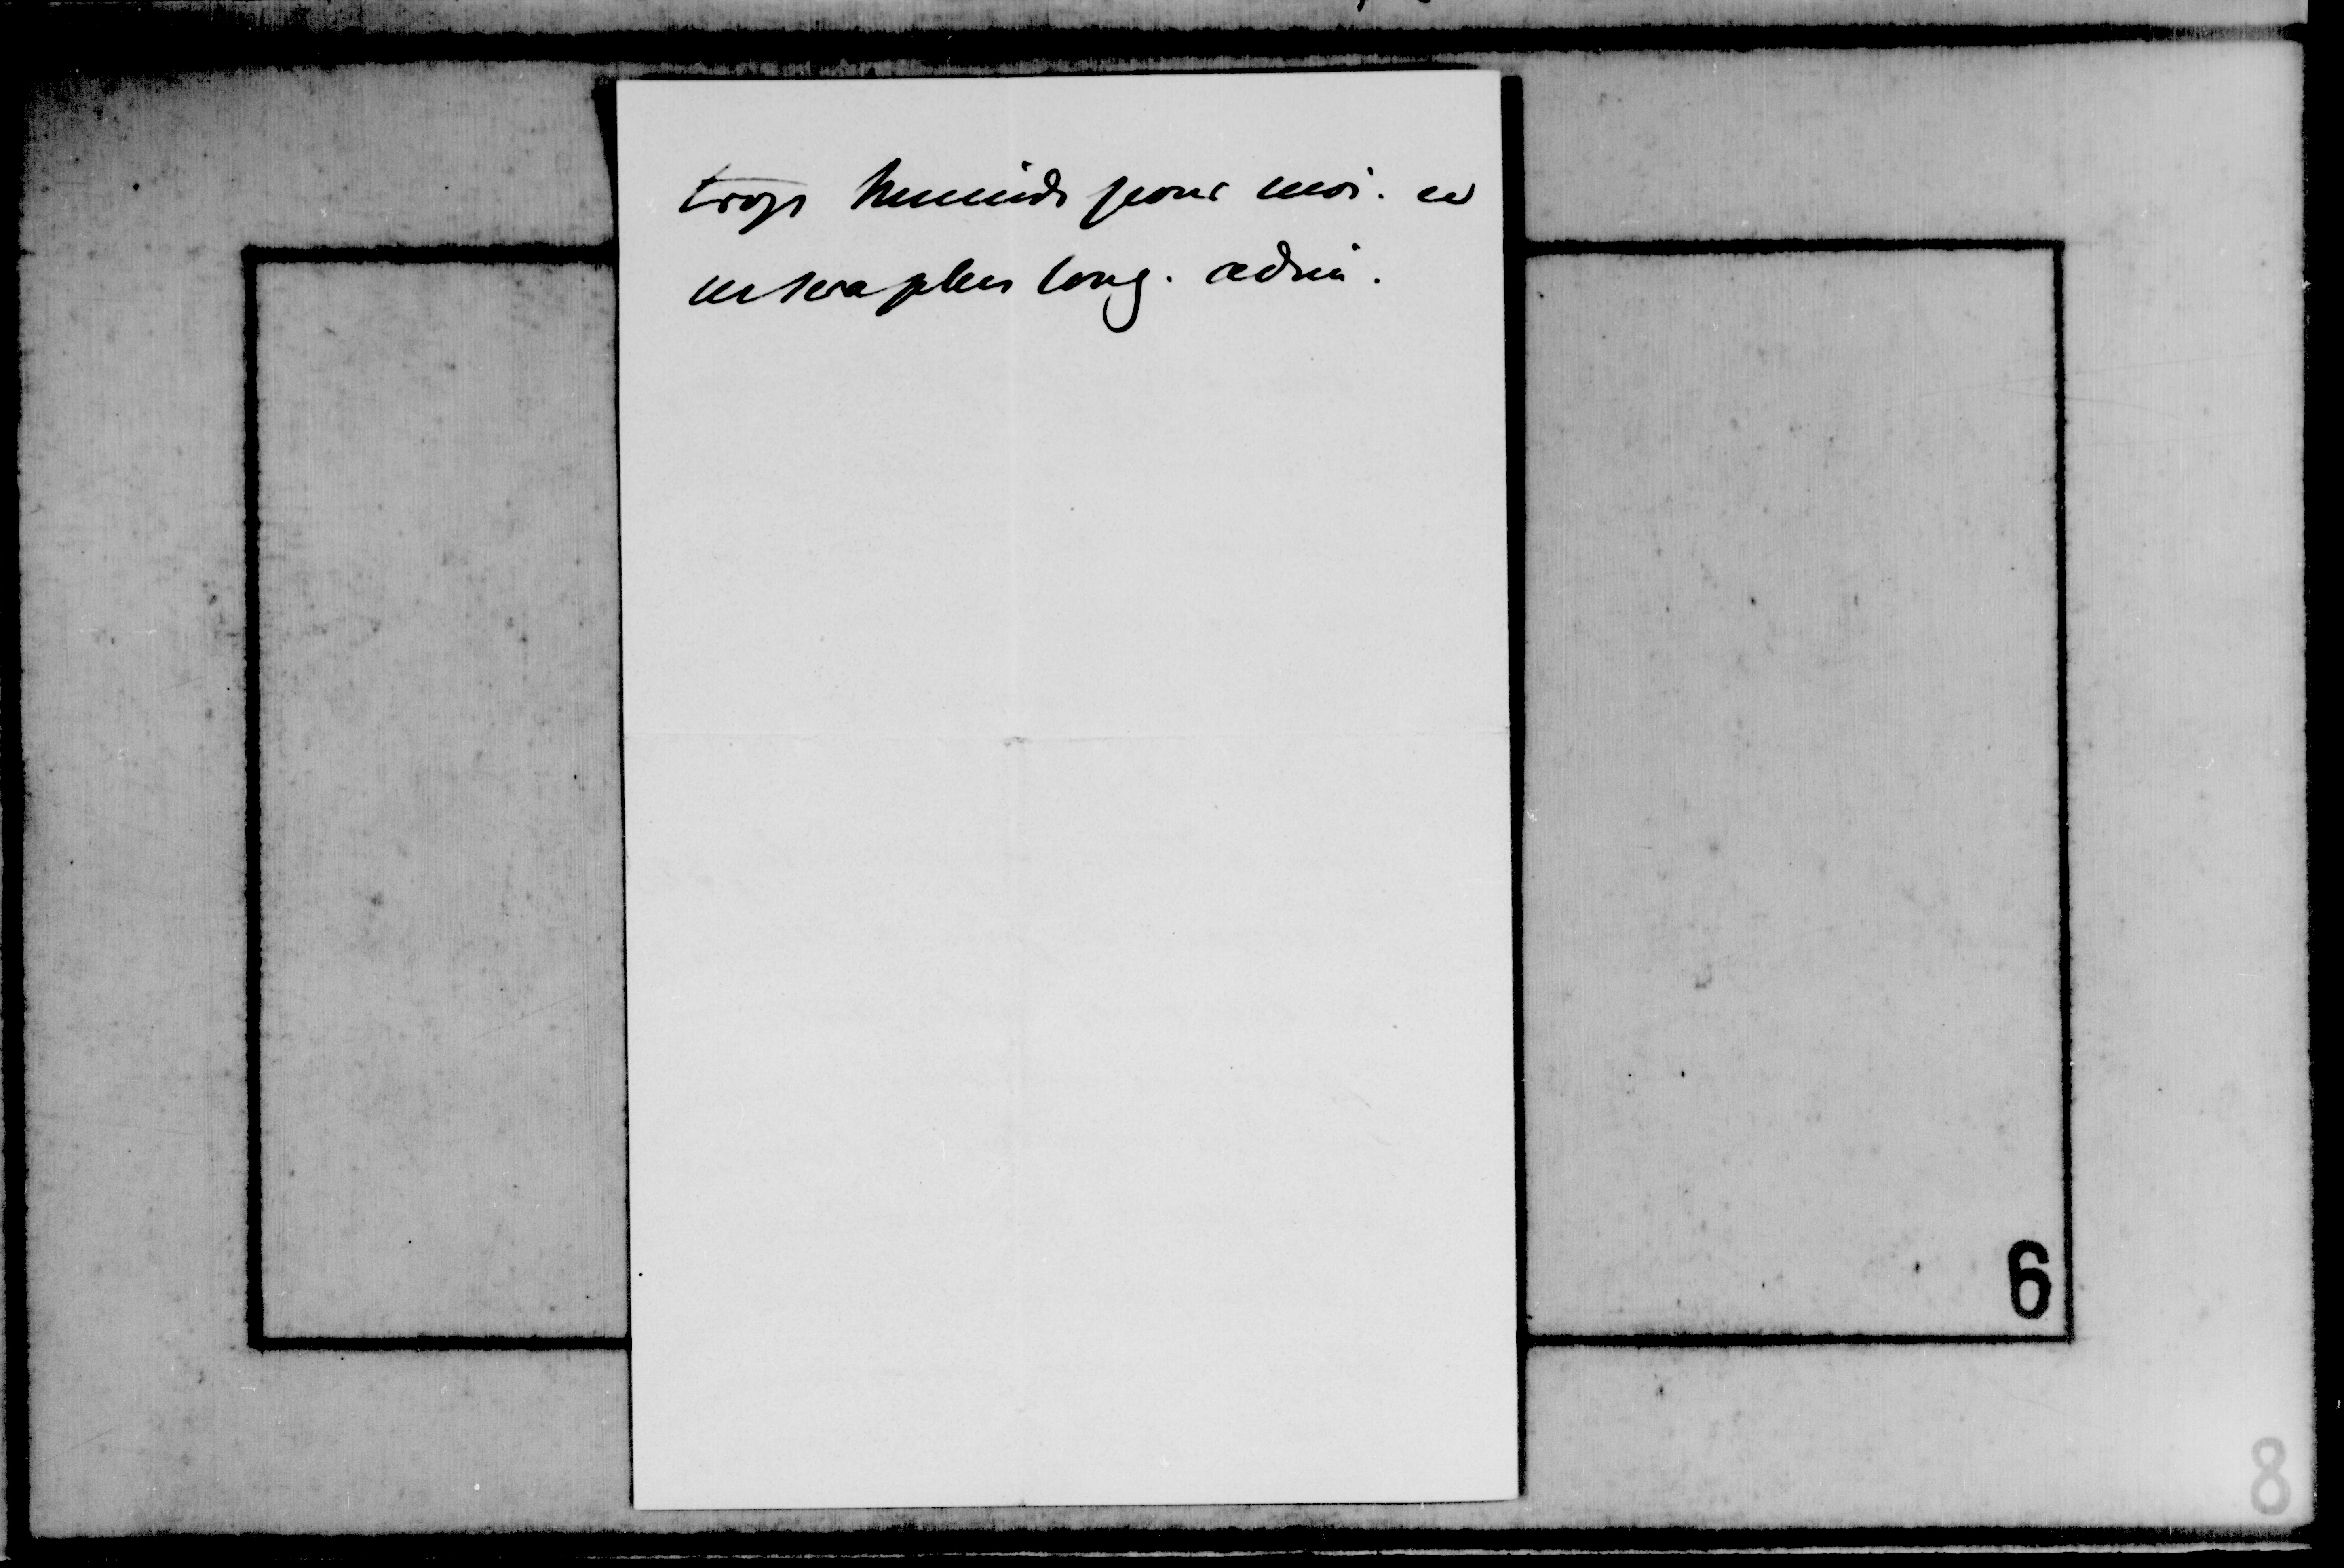 trop humide pour moi. ce
ne sera plus long. adieu.
6
8